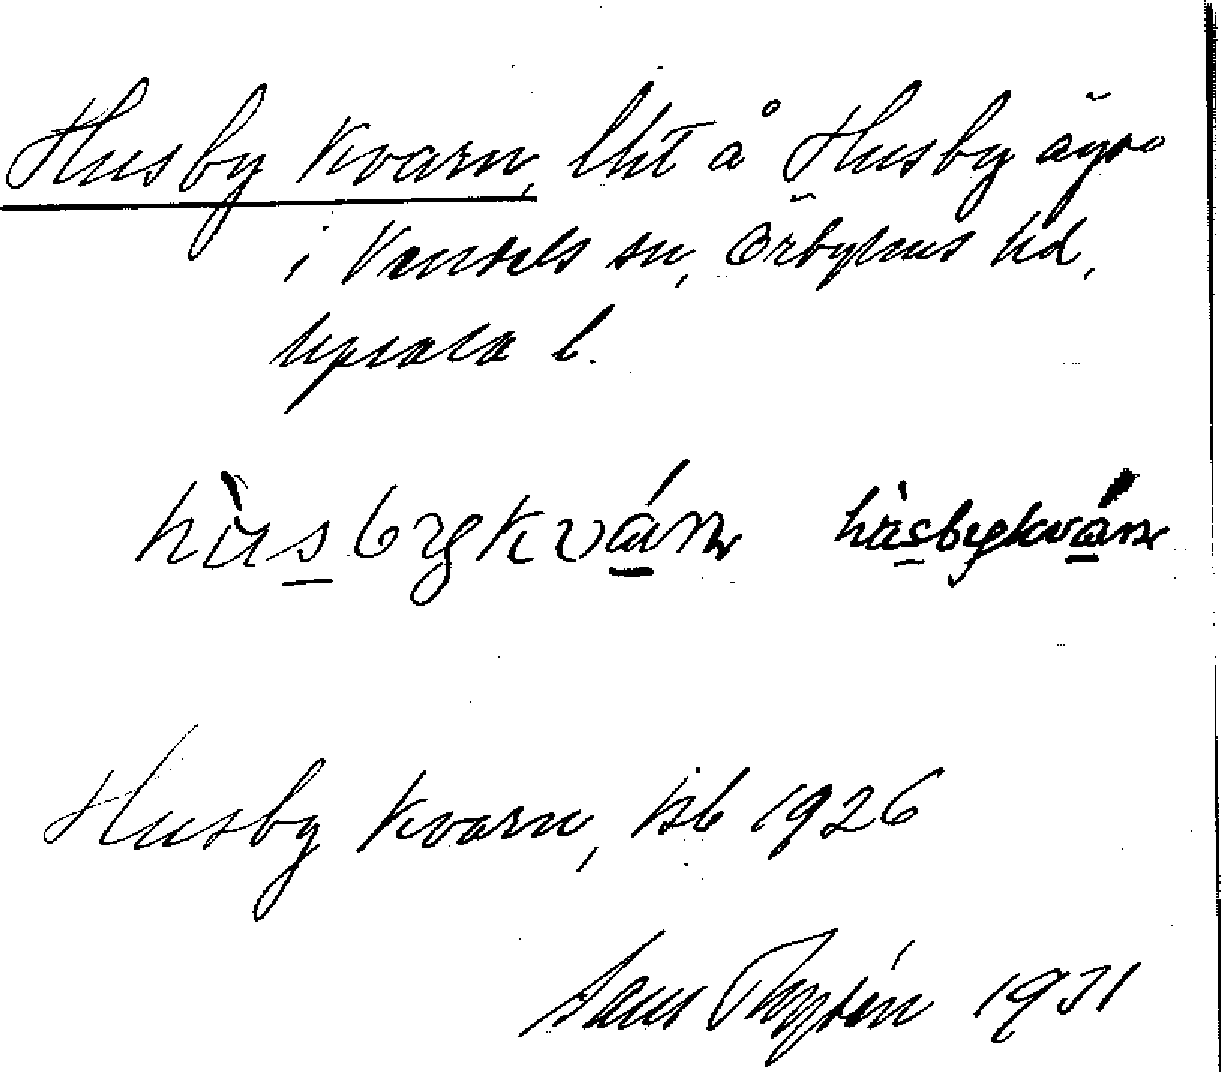 Husby kvarn, lht å Husby ägor
i Vendels sn, Örbyhus hd,
Upsala l.
hùsbykván hùsbykván
Husby kvarn, kb 1926
Sam Thysén 1931